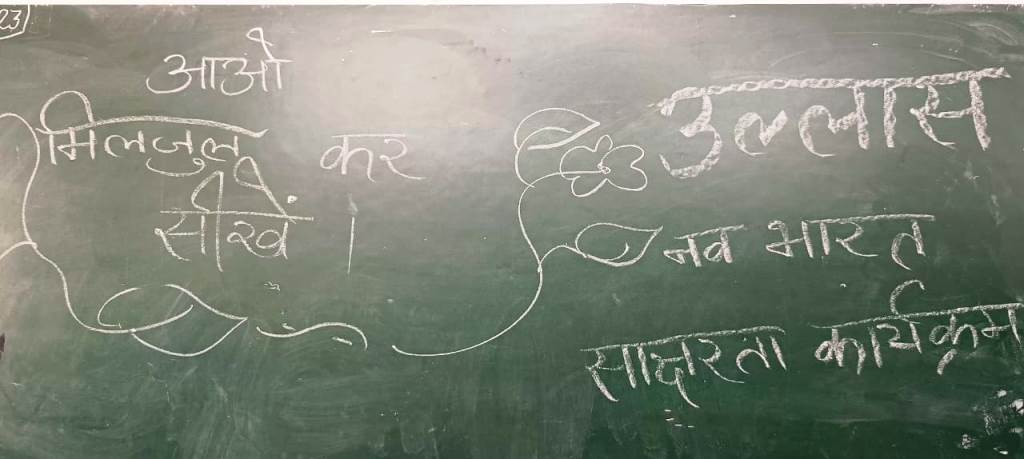 23
आओ
मिलजुल कर
सीखें ।
उल्लास
नव भारत
साक्षरता कार्यक्रम